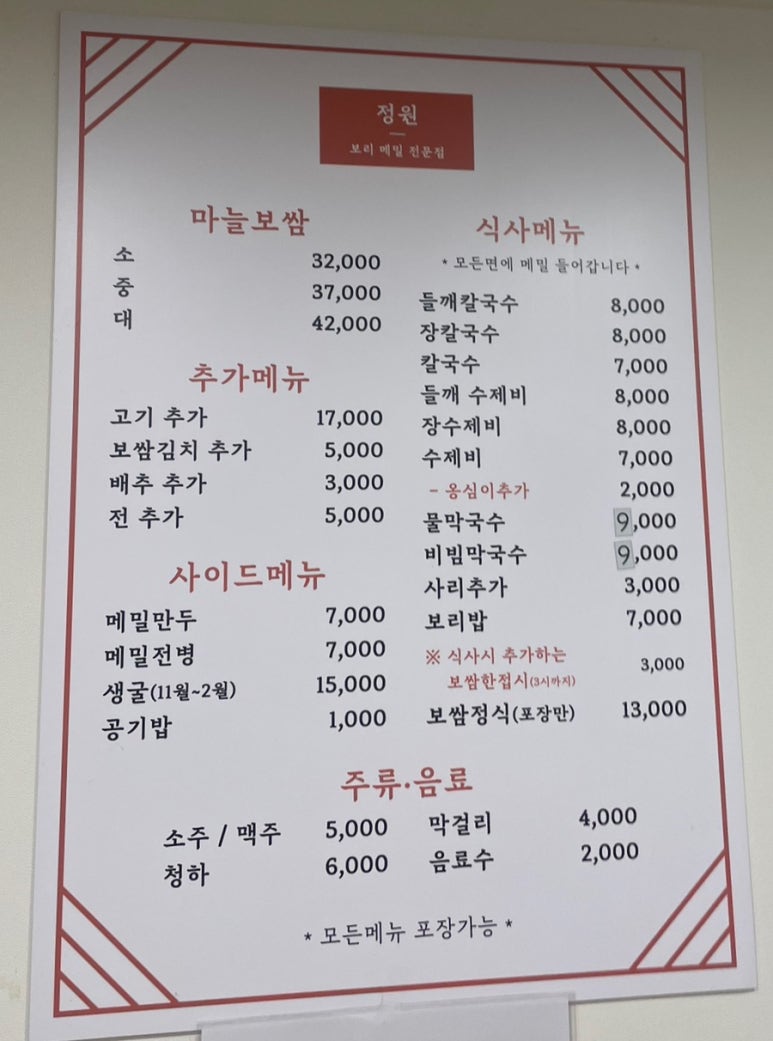 정원
보리 메밀 전문점
마늘보쌈
소 32,000
중 37,000
대 42,000
추가메뉴
고기 추가 17,000
보쌈김치 추가 5,000
배추 추가 3,000
전 추가 5,000
사이드메뉴
메밀만두 7,000
메밀전병 7,000
생굴(11월~2월) 15,000
공기밥 1,000
식사메뉴
* 모든면에 메밀 들어갑니다 *
들깨칼국수 8,000
장칼국수 8,000
칼국수 7,000
들깨 수제비 8,000
장수제비 8,000
수제비 7,000
- 옹심이추가 2,000
물막국수 9,000
비빔막국수 9,000
사리추가 3,000
보리밥 7,000
※ 식사시 추가하는 3,000
보쌈한접시(3시까지)
보쌈정식(포장만) 13,000
주류·음료
소주 / 맥주 5,000 막걸리 4,000
청하 6,000 음료수 2,000
* 모든메뉴 포장가능 *